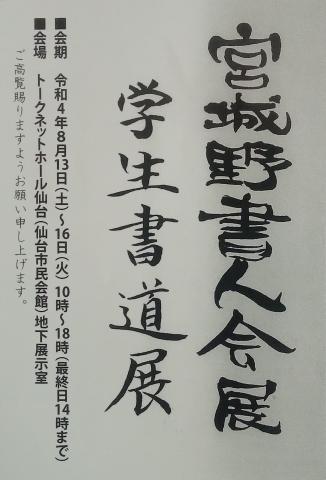 宮城野書人会展
学生書道展
■会期 令和4年8月13日(土)～16日(火) 10時～18時(最終日14時まで)
■会場 トークネットホール仙台(仙台市民会館)地下展示室
ご高覧賜りますようお願い申し上げます。